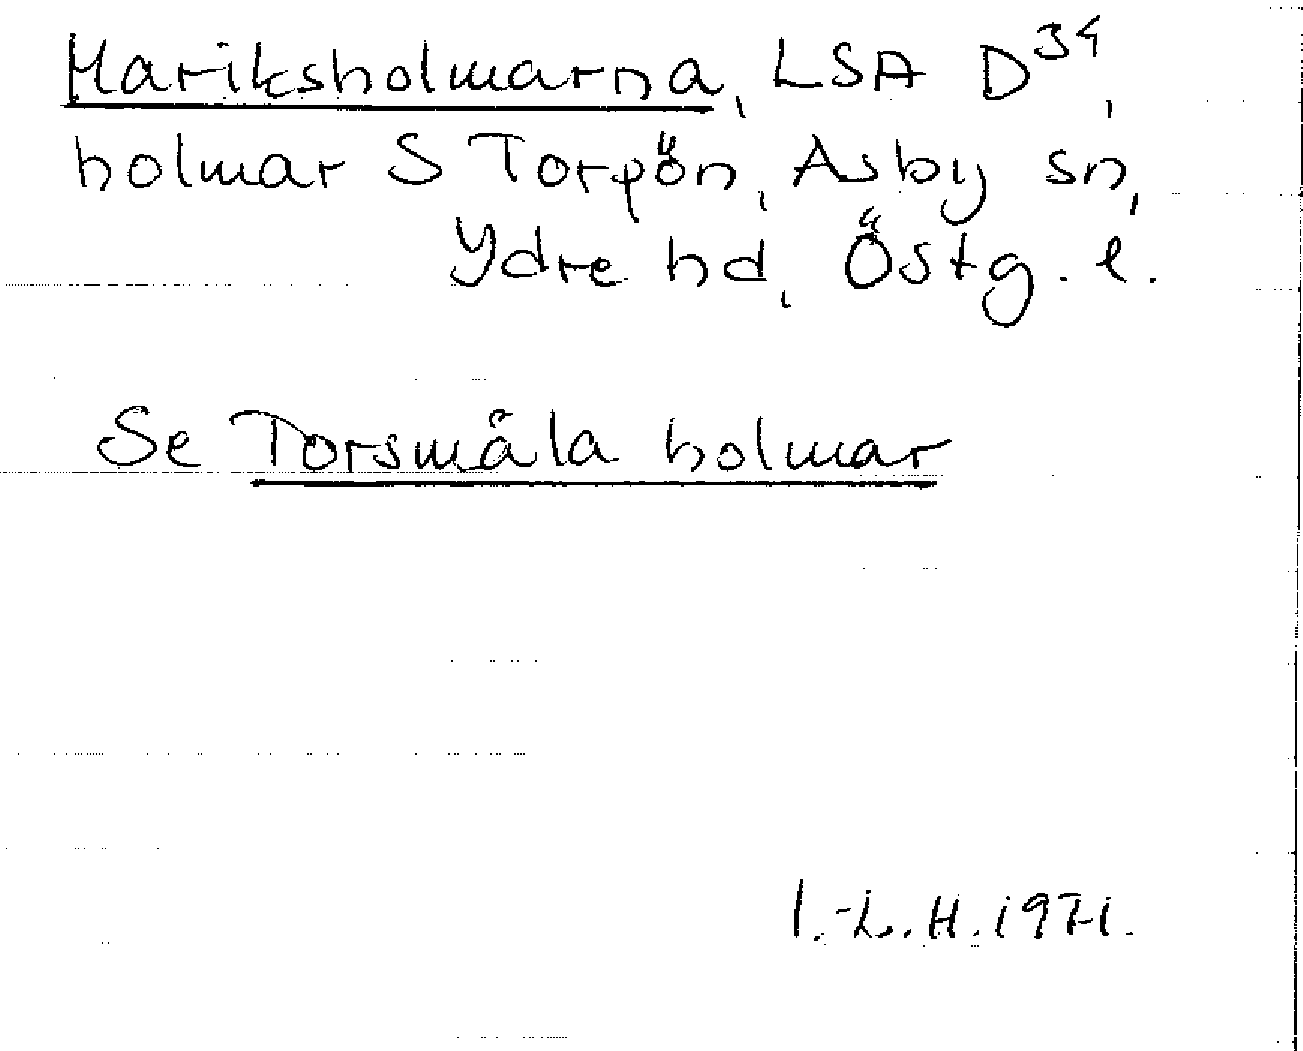 Hariksholmarna, LSA D34,
holmar S Torpön, Asby sn,
Ydre hd, Östg. l.
Se Torsmåla holmar
I.-L. H. 1971.